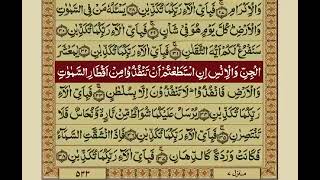 وَالْاِكْرَامِ ۚ﴿۲۷﴾ فَبِاَيِّ اٰلَآءِ رَبِّكُمَا تُكَذِّبٰنِ ﴿۲۸﴾ يَسْـَٔلُهٗ مَنْ فِي السَّمٰوٰتِ
وَالْاَرْضِ ؕ كُلَّ يَوْمٍ هُوَ فِيْ شَاْنٍ ۚ﴿۲۹﴾ فَبِاَيِّ اٰلَآءِ رَبِّكُمَا تُكَذِّبٰنِ ﴿۳۰﴾
سَنَفْرُغُ لَكُمْ اَيُّهَ الثَّقَلٰنِ ۚ﴿۳۱﴾ فَبِاَيِّ اٰلَآءِ رَبِّكُمَا تُكَذِّبٰنِ ﴿۳۲﴾ يٰمَعْشَرَ
الْجِنِّ وَالْاِنْسِ اِنِ اسْتَطَعْتُمْ اَنْ تَنْفُذُوْا مِنْ اَقْطَارِ السَّمٰوٰتِ
وَالْاَرْضِ فَانْفُذُوْا ؕ لَا تَنْفُذُوْنَ اِلَّا بِسُلْطٰنٍ ۚ﴿۳۳﴾ فَبِاَيِّ اٰلَآءِ
رَبِّكُمَا تُكَذِّبٰنِ ﴿۳۴﴾ يُرْسَلُ عَلَيْكُمَا شُوَاظٌ مِّنْ نَّارٍ ۙ وَّنُحَاسٌ فَلَا
تَنْتَصِرٰنِ ۚ﴿۳۵﴾ فَبِاَيِّ اٰلَآءِ رَبِّكُمَا تُكَذِّبٰنِ ﴿۳۶﴾ فَاِذَا انْشَقَّتِ السَّمَآءُ
فَكَانَتْ وَرْدَةً كَالدِّهَانِ ۚ﴿۳۷﴾ فَبِاَيِّ اٰلَآءِ رَبِّكُمَا تُكَذِّبٰنِ ﴿۳۸﴾
منزل ۷
۵۳۳